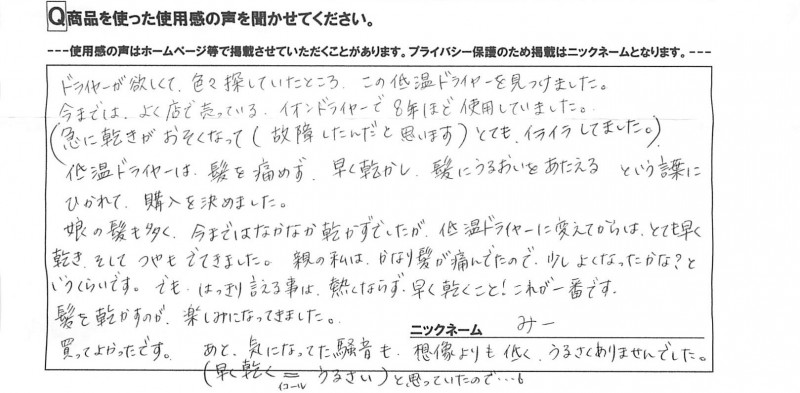 Q商品を使った使用感の声を聞かせてください。
---使用感の声はホームページ等で掲載させていただくことがあります。プライバシー保護のため掲載はニックネームとなります。---
ドライヤーが欲しくて、色々探していたところ、この低温ドライヤーを見つけました。
今までは、よく店で売っている、イオンドライヤーで8年ほど使用していました。
(急に乾きがおそくなって(故障したんだと思います)とても、イライラしてました。)
低温ドライヤーは、髪を痛めず、早く乾かし、髪にうるおいをあたえる という言葉に
ひかれて、購入を決めました。
娘の髪も多く、今まではなかなか乾かずでしたが、低温ドライヤーに変えてからは、とても早く
乾き、そして つやもでてきました。 親の私は、かなり髪が痛んでたので、少しよくなったかな?と
いうくらいです。でも、はっきり言える事は、熱くならず、早く乾くこと!これが一番です。
髪を乾かすのが、楽しみになってきました。
ニックネーム みー
買ってよかったです。 あと、気になってた騒音も、想像よりも低く、うるさくありませんでした。
(早く乾く=うるさい)と思っていたので…。
イコール